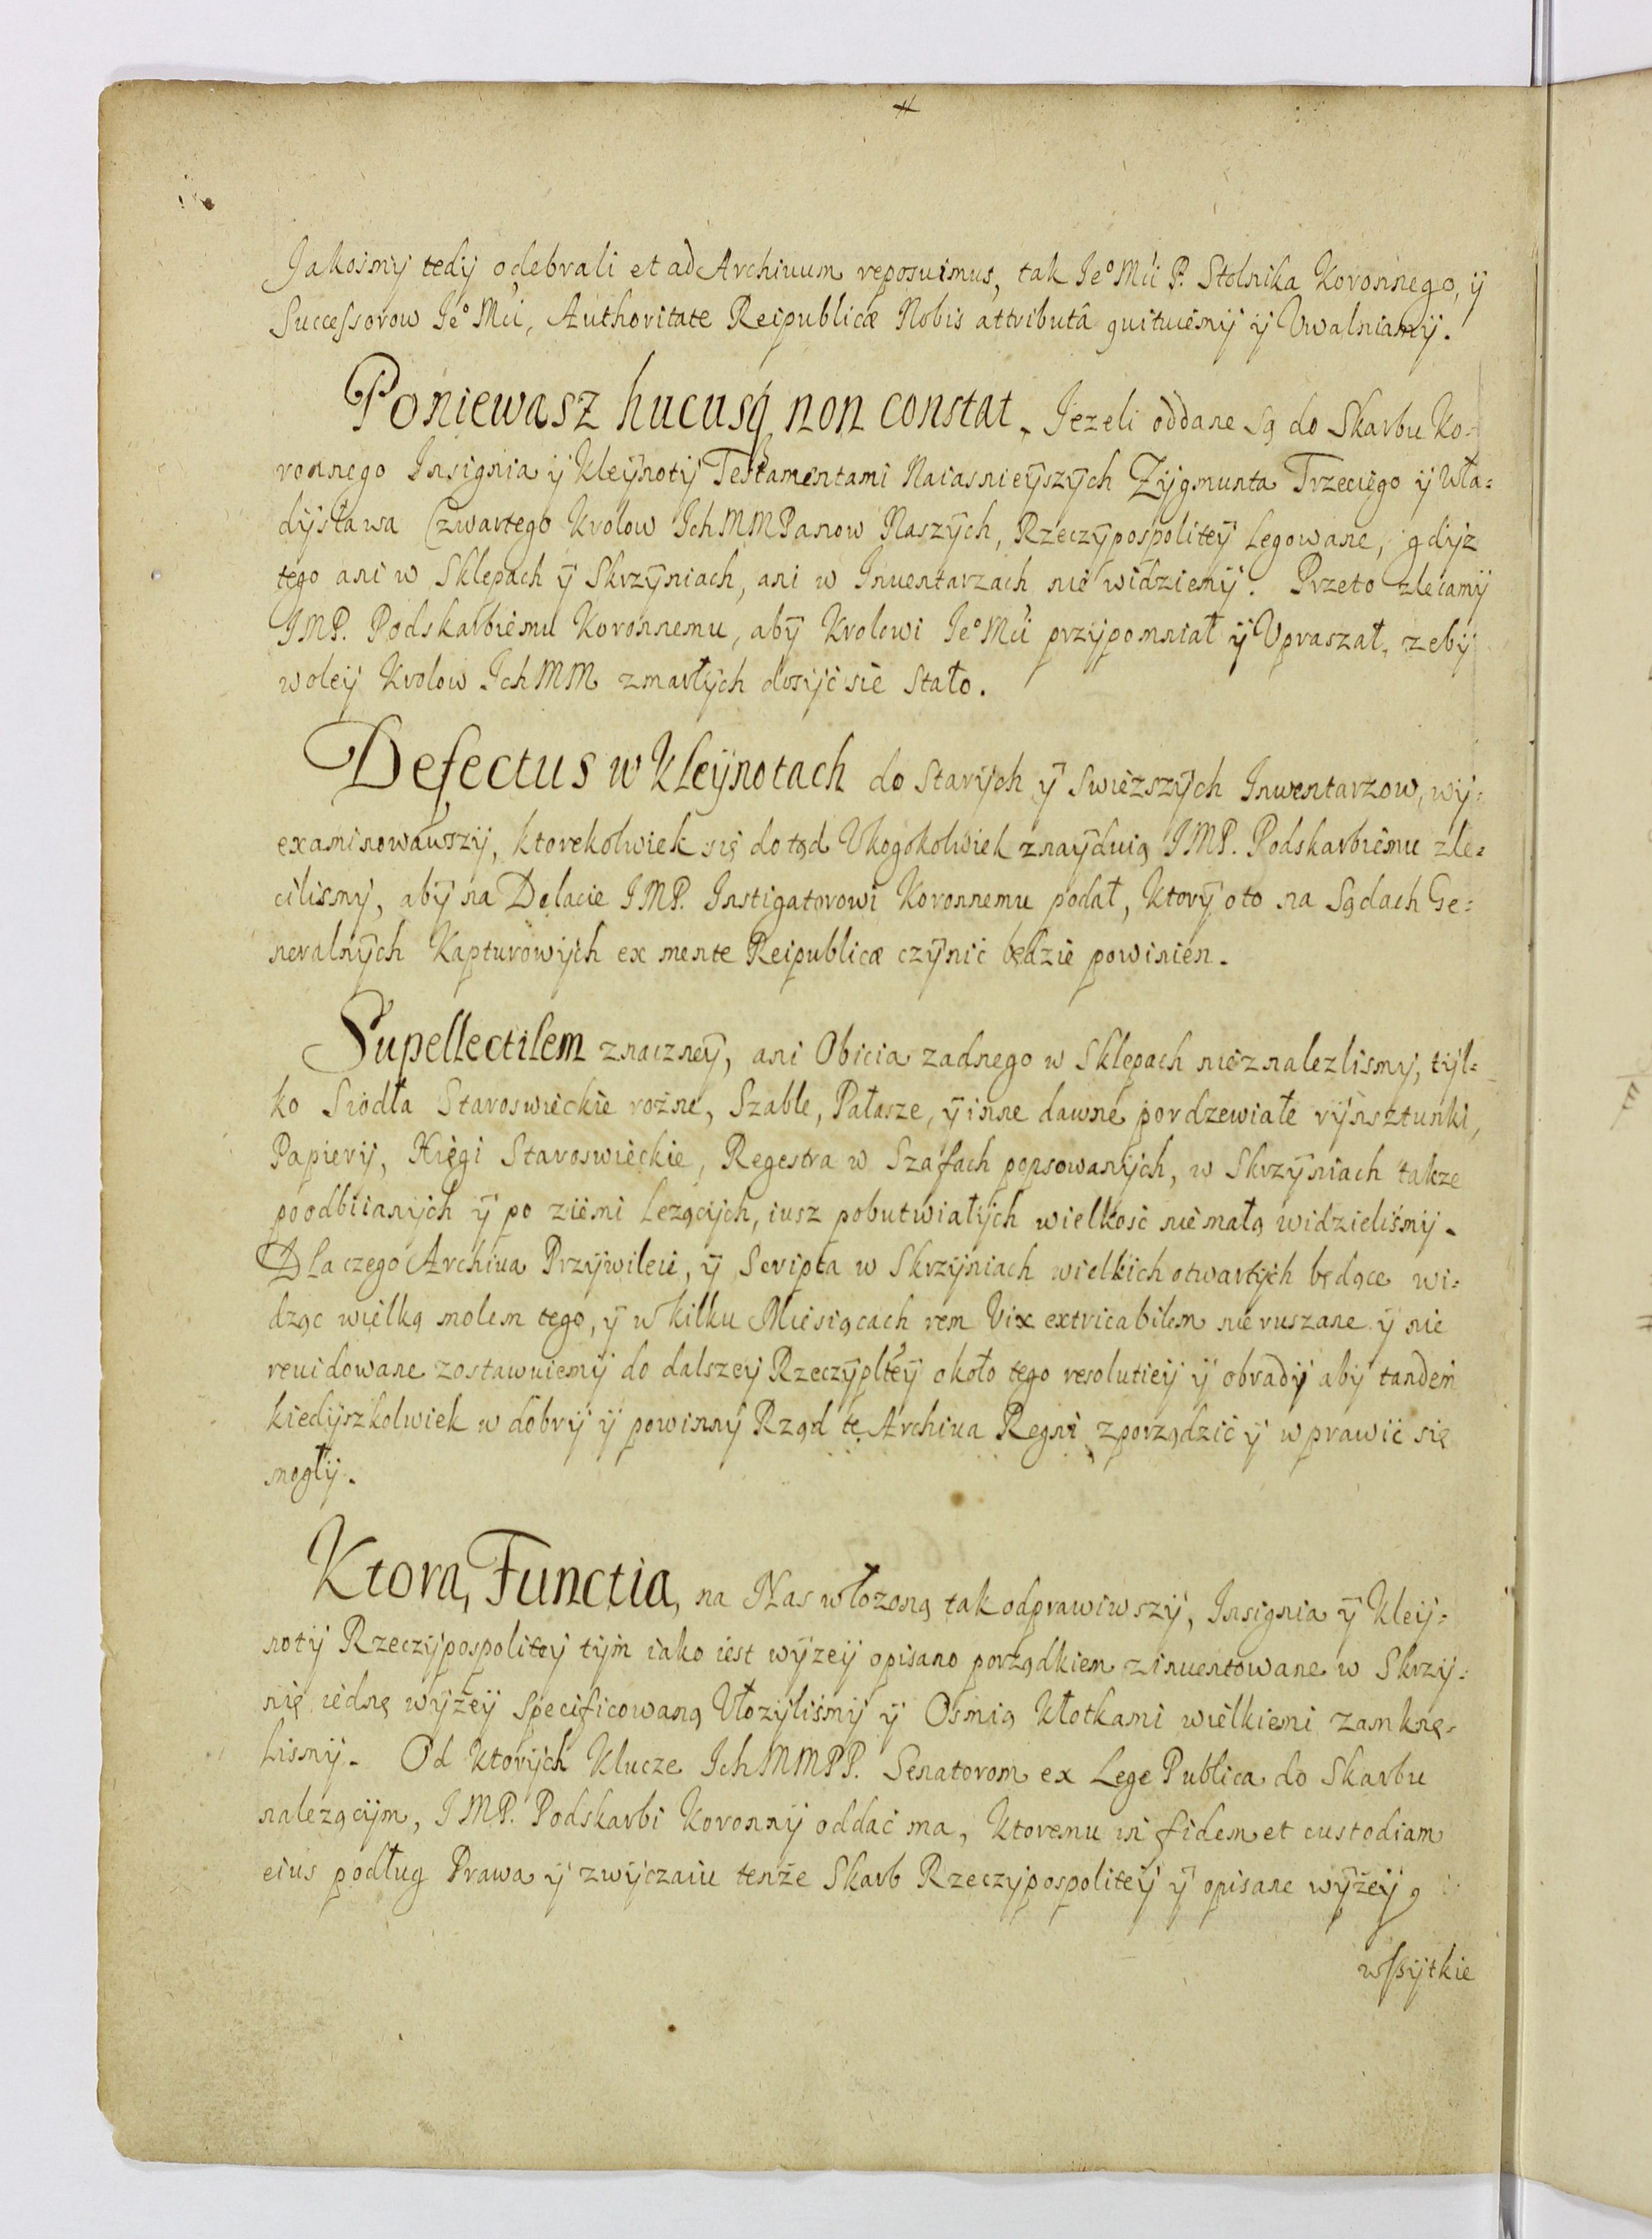 Jakosmy tedy odebrali et ad Archiuum reposuimus, tak Ieº Mći P. Stolnika Koronnego, ÿ
Successorow Ieº Mći, Authoritate Reipublicæ Nobis attributâ quituiemy ÿ Vwalniamy.
Poniewasz hucusq non constat, Iezeli oddane są do Skarbu Ko-
ronnego Insignia ÿ Kleÿnoty Testamentami Naiasnieÿszÿch Zÿgmunta Trzeciego ÿ Wła=
dÿsława Czwartego Krolow Ich MM Panow Naszÿch, Rzeczÿpospoliteÿ Legowane, gdÿz
tego ani w Sklepach ÿ Skrzÿniach, ani w Inuentarzach nie widziemÿ. Przeto zlecamÿ
IMP. Podskarbiemu Koronnemu, abÿ Krolowi Ieº Mći przÿpomniał ÿ Vpraszał, zebÿ
woleÿ Krolow Ich MM zmarłÿch dosÿć sie stało.
Defectus w Kleÿnotach do Starÿch ÿ swiezszÿch Inwentarzow, wÿ=
examinowawszÿ, ktorekolwiek się do tąd Vkogokolwiek znaÿduią IMP. Podskarbiemu zle=
cilismÿ, abÿ na Delacie IMP. Instigatorowi Koronnemu podał, ktorÿ oto na Sądach Ge=
neralnÿch Kapturowÿch ex mente Reipublicæ czÿnić będzie powinien.
Supellectilem znaczneÿ, ani Obicia zadnego w Sklepach nieznalezlismÿ, tÿl=
ko Siodła Staroswieckie rożne, Szable, Pałasze, ÿ inne dawne pordzewiałe rÿnsztunki,
Papierÿ, Xięgi Staroswieckie, Regestra w Szafach popsowanÿch, w Skrzÿniach takze
poodbiianÿch ÿ po ziemi lezącÿch, iusz pobutwiałÿch wielkosć niemałą widzieliśmÿ.
Dla czego Archiua Przÿwileie, ÿ Scripta w Skrzÿniach wielkich otwartÿch będące wi=
dząc wielką molem tego, ÿ w kilku Miesiącach rem Vix extricabilem nie ruszane ÿ nie
reuidowane zostawuiemÿ do dalszeÿ Rzeczÿplteÿ około tego resolutieÿ ÿ obradÿ abÿ tandem
kiedÿszkolwiek w dobrÿ ÿ powinnÿ Rząd te Archiua Regni zporządzić ÿ wprawić się
mogłÿ.
Ktorą Functią, na Nas włozoną tak odprawiwszÿ, Insignia ÿ Kleÿ=
notÿ Rzeczÿpospoliteÿ tÿm iako iest wÿzeÿ opisano porządkiem zinuentowane w Skrzÿ=
nię iednę wÿżeÿ specificowaną Vłozÿliśmÿ ÿ Osmią Kłotkami wielkiemi zamknę=
lismÿ. Od ktorÿch Klucze Ich MMPP. Senatorom ex Lege Publica do Skarbu
nalezącÿm, IMP. Podskarbi Koronnÿ oddać ma, ktoremu in fidem et custodiam
eius podług Prawa ÿ zwÿczaiu tenże Skarb Rzeczÿpospoliteÿ ÿ opisane wÿżeÿ,
wssÿtkie